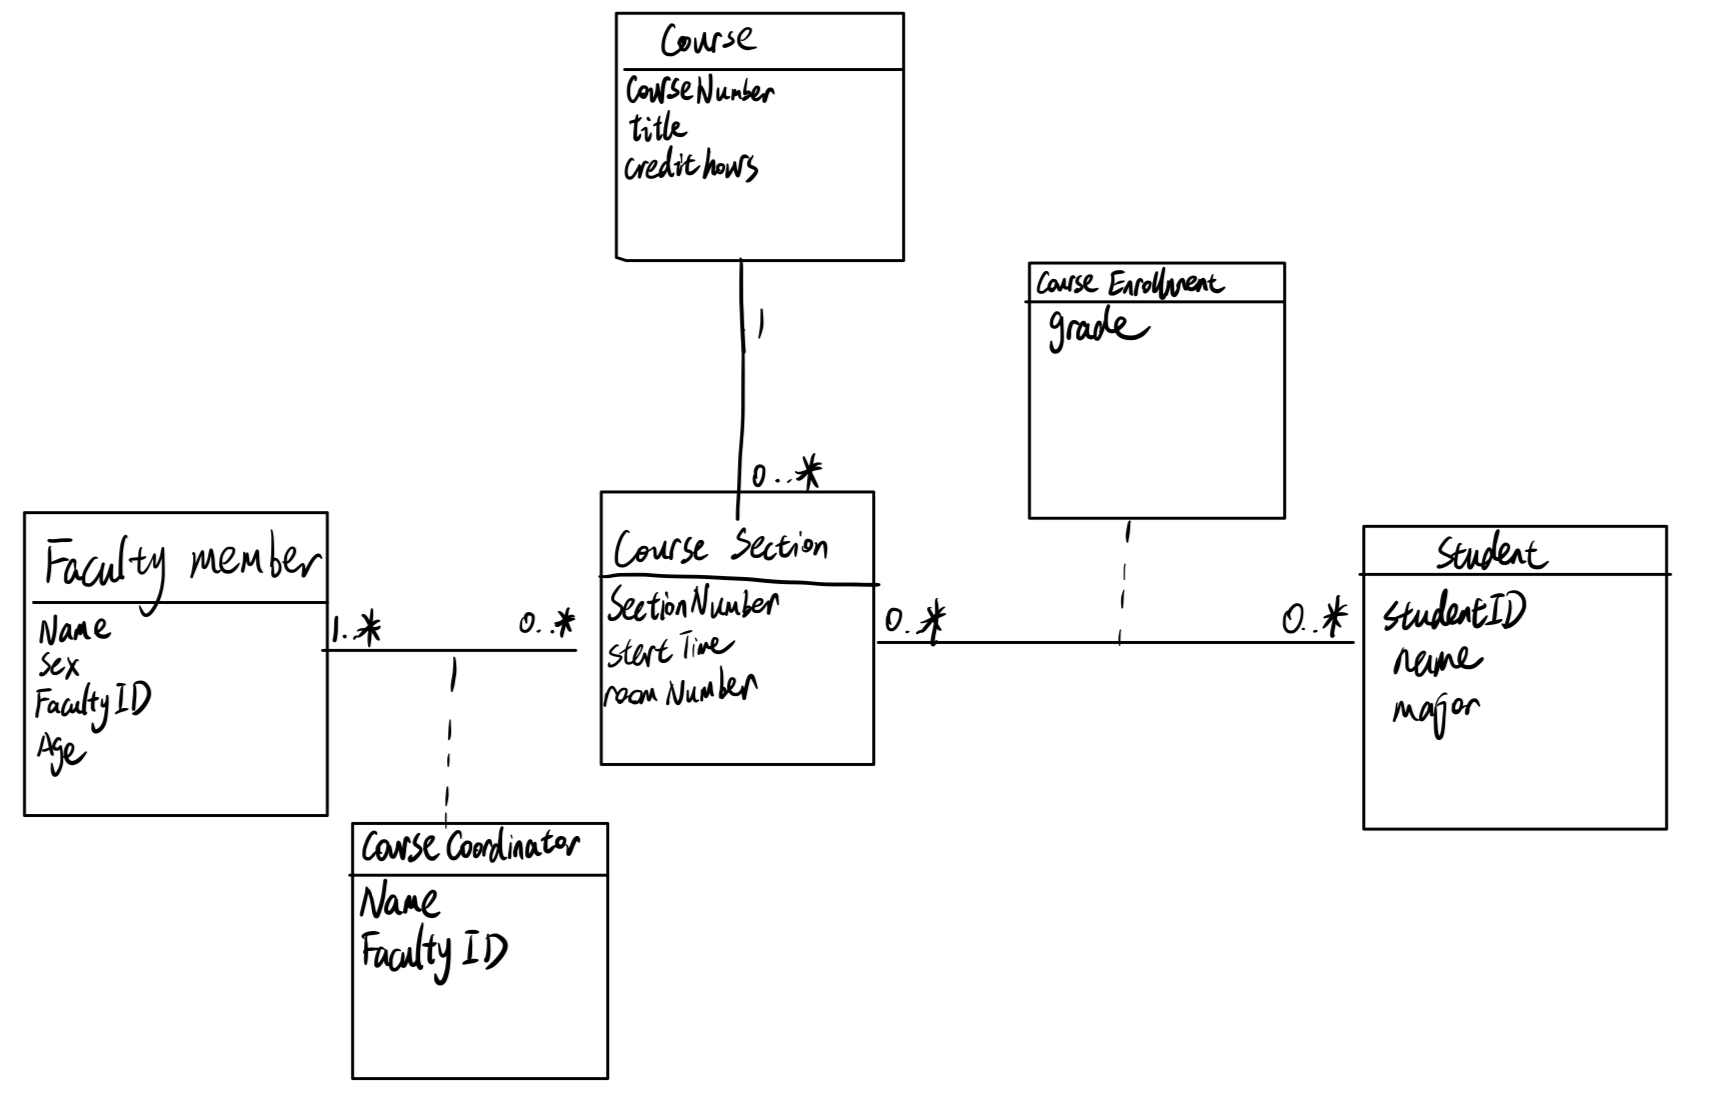 Course
CourseNumber
title
credithours
1
0..*
Course Enrollment
grade
Faculty member
Name
Sex
FacultyID
Age
1..*
0..*
Course Section
SectionNumber
startTime
roomNumber
0..*
0..*
Student
studentID
name
major
Course Coordinator
Name
Faculty ID